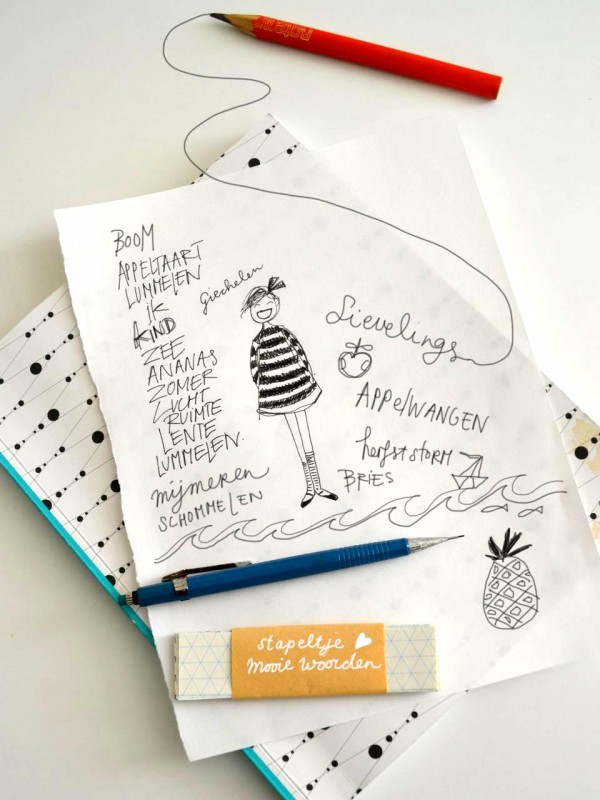 BOOM
APPELTAART
LUMMELEN
ik
KIND
ZEE
ANANAS
ZOMER
LUCHT
RUIMTE
LENTE
LUMMELEN.
mijmeren
SCHOMMELEN
giechelen
Lievelings
APPelWANGEN
herfststorm
BRIES
stapeltje
mooie woorden